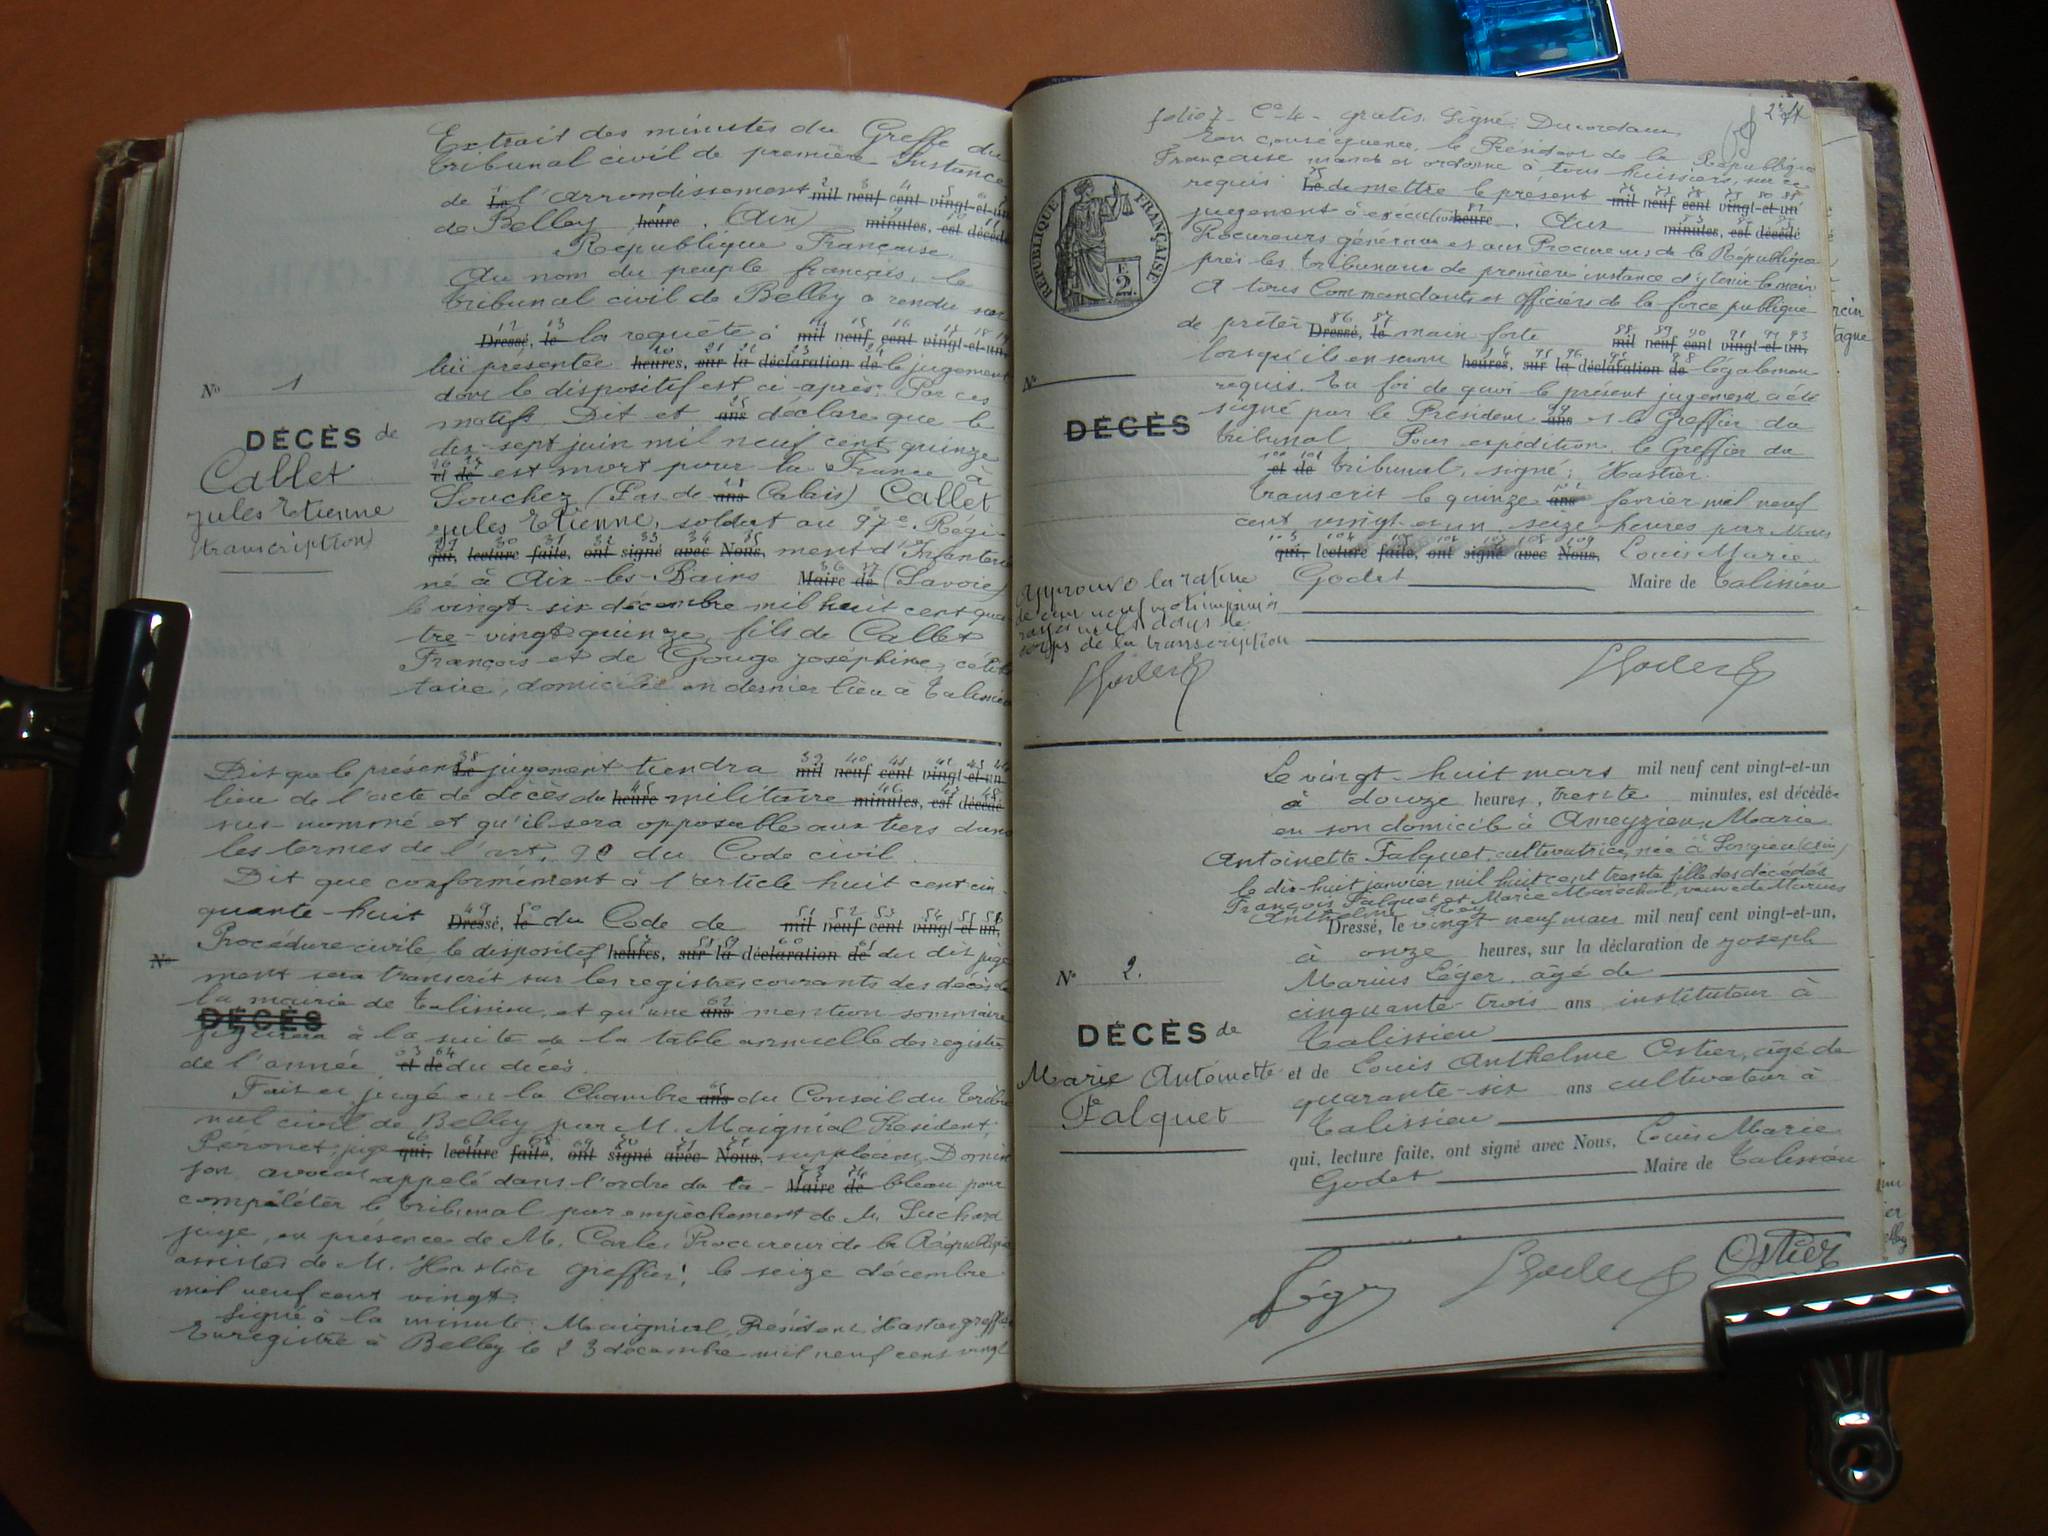 Extrait des minutes du Greffe du
tribunal civil de première Instance
de Le l'arrondissement mil neuf cent vingt-et-un
de Belley heure. (Ain) minutes, est décédé
République Française
Au nom du peuple français, le
tribunal civil de Belley a rendu sur
Dressé, le la requête à mil neuf cent vingt-et-un,
lui présentée heures, sur la déclaration de le jugement
dont le dispositif est ci-après: Par ces
motifs Dit et ans déclare que le
dix-sept juin mil neuf cent quinze
et de est mort pour la France à
Souchez (Pas de ans Calais) Callet
Jules Etienne, soldat au 97e Régi-
qui, lecture faite, ont signé avec Nous, ment d'Infanterie
né à Aix-les-Bains Maire de (Savoie)
le vingt-six décembre mil huit cent qua
tre-vingt quinze, fils de Callet
François et de Gouge Joséphine, céliba
taire, domicilié en dernier lieu à Talissieu
No 1
DÉCÈS de
Callet
Jules Etienne
(transcription)
Dit que le présent Le jugement tiendra mil neuf cent vingt-et-un
lieu de l'acte de décès du heure militaire minutes, est décédé
sus-nommé et qu'il sera opposable aux tiers dans
les termes de l'art. 92 du Code civil
Dit que conformément à l'article huit cent cin-
quante-huit Dressé, le du Code de mil neuf cent vingt-et-un,
Procédure civile le dispositif heures, sur la déclaration de du dit juge
No
ment sera transcrit sur les registres courants des décès de
la mairie de Talissieu, et qu'une ans mention sommaire
DÉCÈS
figurera à la suite de la table annuelle des registres
de l'année et de du décès.
Fait et jugé en la Chambre ans du Conseil du Tribu
nal civil de Belley par M. Maignial Président,
Peronet, juge qui, lecture faite, ont signé avec Nous, suppléant,
son avocat appelé dans l'ordre du ta- Maire de bleau pour
compléter le tribunal par empêchement de M. Suchard
juge, en présence de M. Carle, Procureur de la République
assistés de M. Hastier greffier, le seize décembre
mil neuf cent vingt.
Signé à la minute: Maignial, Président Hastier greffier
Enregistré à Belley le 23 décembre mil neuf cent vingt
folio 7 Ce 4 gratis. Signé:
En conséquence, le Président de la République
Française mande et ordonne à tous huissiers, sur ce
requis Le de mettre le présent mil neuf cent vingt-et-un
jugement à exécution heure. Aux minutes, est décédé
Procureurs généraux et aux Procureurs de la République
près les tribunaux de première instance d'y tenir la main
A tous Commandants et officiers de la force publique
de prêter Dressé, le main forte mil neuf cent vingt-et-un,
lorsqu'ils en seront heures, sur la déclaration de légalement
requis. En foi de quoi le présent jugement a été
signé par le Président ans et le Greffier du
tribunal. Pour expédition, le Greffier du
et de tribunal, signé: Hastier.
Transcrit le quinze ans février mil neuf
cent vingt-et-un, seize heures par Nous
qui, lecture faite, ont signé avec Nous, Louis Marie
Godet Maire de Talissieu
RÉPUBLIQUE FRANÇAISE
2
No
DÉCÈS
Approuvé la rature
de cent neuf mots imprimés
rayés nuls dans le
corps de la transcription
L Godet
L Godet
Le vingt-huit mars mil neuf cent vingt-et-un
à douze heures, trente minutes, est décédée
en son domicile à Ameyzieu, Marie
Antoinette Falquet, cultivatrice, née à Songieu (Ain)
le dix-huit janvier mil huit cent trente fille des décédés
François Falquet et Marie Maréchal, veuve de Marius
Anthelme Rey
Dressé, le vingt neuf mars mil neuf cent vingt-et-un,
à onze heures, sur la déclaration de Joseph
Marius Léger, âgé de
cinquante-trois ans instituteur à
Talissieu
et de Louis Anthelme Ostier, âgé de
quarante-six ans cultivateur à
Talissieu
qui, lecture faite, ont signé avec Nous, Louis Marie
Godet Maire de Talissieu
No 2.
DÉCÈS de
Marie Antoinette
Falquet
Léger
L Godet
Ostier